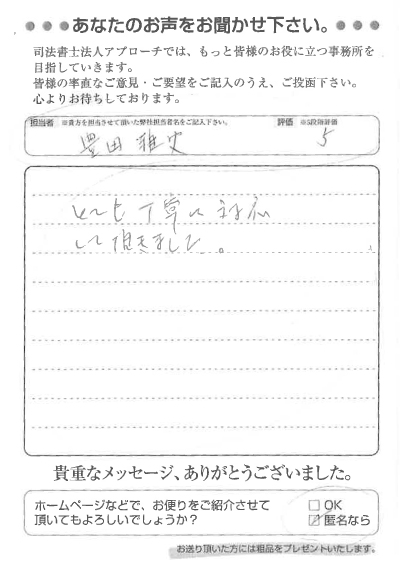 あなたのお声をお聞かせ下さい。
司法書士法人アプローチでは、もっと皆様のお役に立つ事務所を
目指していきます。
皆様の率直なご意見・ご要望をご記入のうえ、ご投函下さい。
心よりお待ちしております。
担当者 ※貴方を担当させて頂いた弊社担当者名をご記入下さい。 評価 ※5段階評価
豊田 雅史 5
とても丁寧に対応
して頂きました。
貴重なメッセージ、ありがとうございました。
ホームページなどで、お便りをご紹介させて
頂いてもよろしいでしょうか?
□ OK
☑ 匿名なら
お送り頂いた方には粗品をプレゼントいたします。